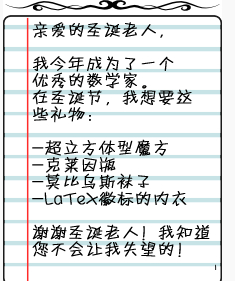 亲爱的圣诞老人，
我今年成为了一个
优秀的数学家。
在圣诞节，我想要这
些礼物：
—超立方体型魔方
—克莱因瓶
—莫比乌斯袜子
—LaTeX徽标的内衣
谢谢圣诞老人！我知道
您不会让我失望的！